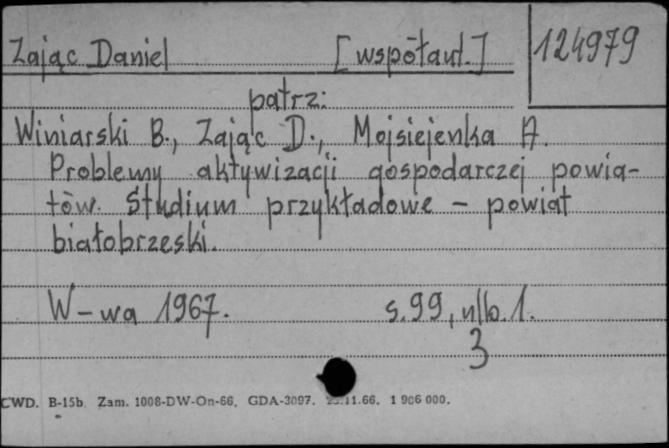 Zając Daniel [współaut.] 124979
patrz:
Winiarski B., Zając D., Mojsiejenka A.
Problemy aktywizacji gospodarczej powia-
tów. Studium przykładowe - powiat
białobrzeski.
W-wa 1967. s.99, nlb.1.
3
CWD. B-15b. Zam. 1008-DW-On-66, GDA-3097. .11.66. 1 906 000.